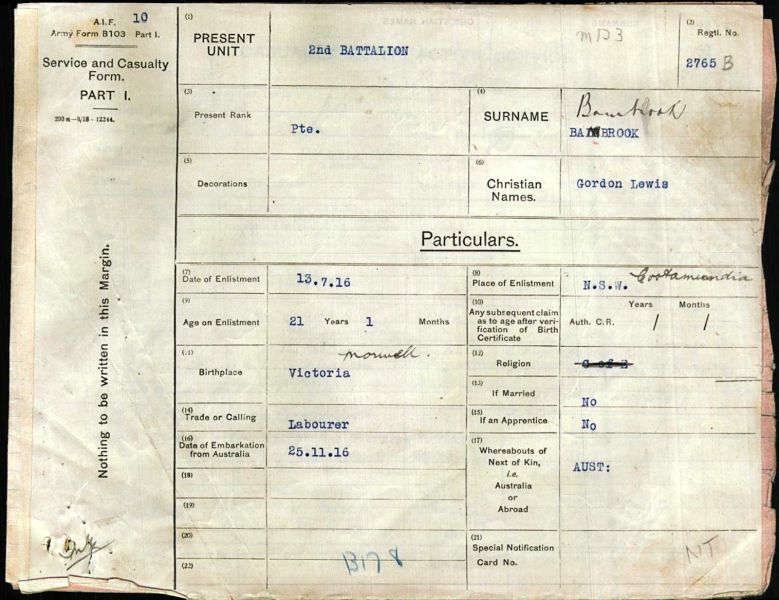 A.I.F. 10
Army Form B103 Part I.
Service and Casualty
Form.
PART I.
200 m—8/18—12244.
Nothing to be written in this Margin.
(1)
PRESENT
UNIT
2nd BATTALION
(2)
Regtl. No.
2765 B
(3)
Present Rank
Pte.
(4)
SURNAME
Bambrook
BAMBROOK
(5)
Decorations
(6)
Christian
Names.
Gordon Lewis
Particulars.
(7)
Date of Enlistment
13.7.16
(8)
Place of Enlistment
N.S.W. Cootamundra
(9)
Age on Enlistment
21 Years 1 Months
(10)
Any subsequent claim
as to age after veri-
fication of Birth
Certificate
Years Months
Auth. C.R. / /
(11)
Birthplace
morwell.
Victoria
(12)
Religion
C of E
(13)
If Married
No
(14)
Trade or Calling
Labourer
(15)
If an Apprentice
No
(16)
Date of Embarkation
from Australia
25.11.16
(17)
Whereabouts of
Next of Kin,
i.e.
Australia
or
Abroad
AUST:
(18)
(19)
(20)
(21)
Special Notification
Card No.
NT
(22)
B178